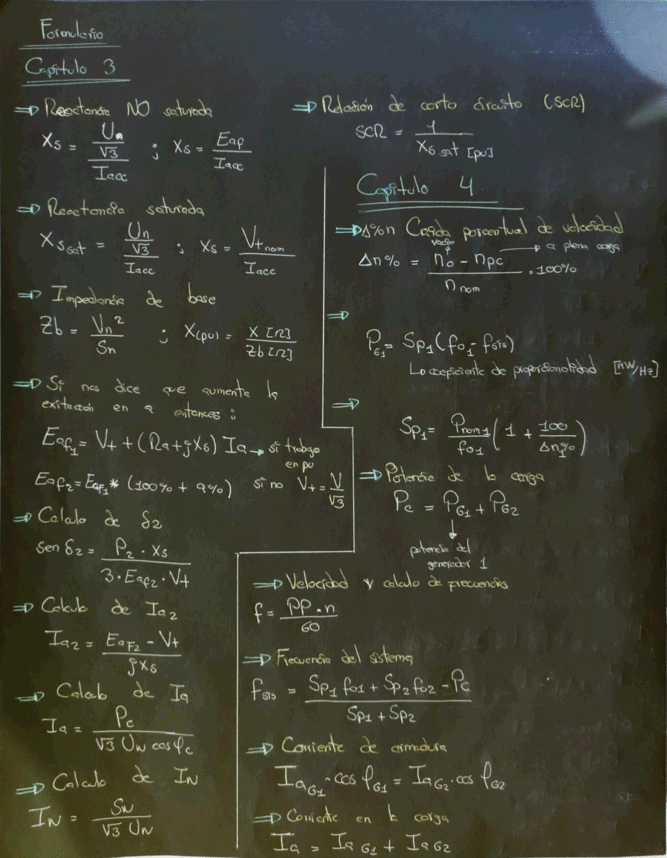 Formulario
Capitulo 3
⇒ Reactancia NO saturada
Xs = (Un/√3)/Iacc ; Xs = Eaf/Iacc
⇒ Reactancia saturada
Xs sat = (Un/√3)/Iacc ; Xs = Vt nom/Iacc
⇒ Impedancia de base
Zb = Vn²/Sn ; X(pu) = X [Ω]/Zb [Ω]
⇒ Si nos dice que aumenta la
exitación en a entonces:
Eaf1 = Vt + (Ra + jXs) Ia → si trabajo
en pu
Eaf2 = Eaf1 * (100% + a%) si no Vt = V/√3
⇒ Calculo de δ2
sen δ2 = P2 · Xs/3 · Eaf2 · Vt
⇒ Calculo de Ia2
Ia2 = Eaf2 - Vt/jXs
⇒ Calculo de Ia
Ia = Pc/√3 UN cos φc
⇒ Calculo de IN
IN = SN/√3 UN
⇒ Relación de corto circuito (SCR)
SCR = 1/Xs sat [pu]
Capitulo 4
⇒ Δ%n Caida porcentual de velocidad
vacío → a plena carga
Δn% = no - npc/n nom · 100%
⇒
PG1 = Sp1 (fo1 - fsis)
↳ coeficiente de proporcionalidad [kW/Hz]
⇒
Sp1 = Pnom1/fo1 (1 + 100/Δn1%)
⇒ Potencia de la carga
Pc = PG1 + PG2
↓
potencia del
generador 1
⇒ Velocidad y calculo de frecuencias
f = PP · n/60
⇒ Frecuencia del sistema
fsis = Sp1 fo1 + Sp2 fo2 - Pc/Sp1 + Sp2
⇒ Corriente de armadura
IaG1 · cos φG1 = IaG2 · cos φG2
⇒ Corriente en la carga
Ia = Ia G1 + Ia G2